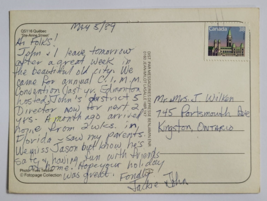 May 5/89
Hi Folks!
John & I leave tomorrow
after a great week in
the beautiful old city. We
came for annual C.I.M.M.
Convention last yr. Edmonton
hosted John's district 5
Director now for part 2
yrs. A month ago arrived
home from 2 wks. in
Florida - saw my parents
We miss Jason but know he's
safe, having fun with friends
at home. Hope your holiday
was great. Fondly
Jackie John
Canada
Mr & Mrs. J Wilken
745 Portsmouth Ave
Kingston Ontario